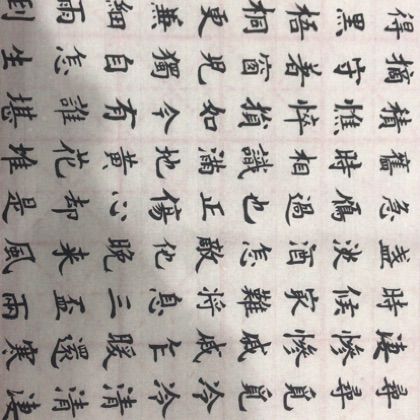 尋尋覓覓冷冷清清淒
淒慘慘戚戚乍暖還寒
時候最難將息三盃兩
盞淡酒怎敵他晚來風
急鴈過也正傷心却是
舊時相識滿地黃花堆
積憔悴損如今有誰堪
摘守着窗兒獨自怎生
得黑梧桐更兼細雨到